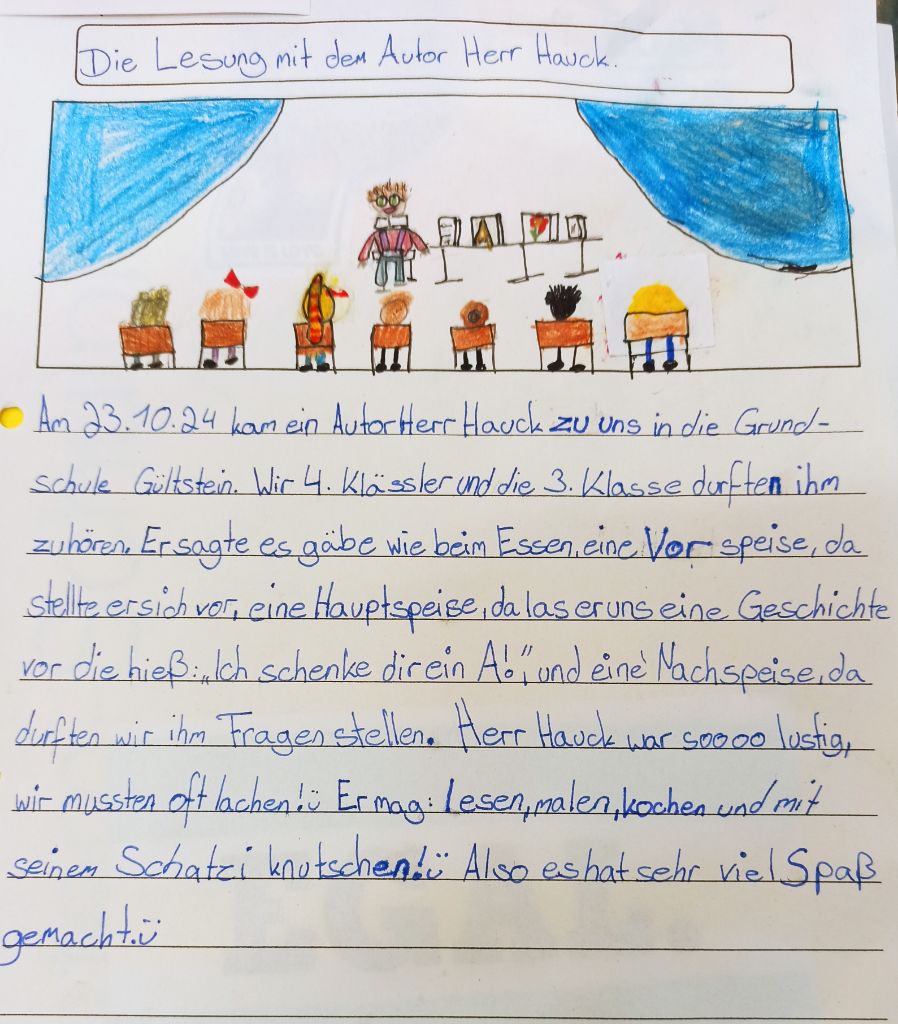 Die Lesung mit dem Autor Herr Hauck.
Am 23.10.24 kam ein Autor Herr Hauck zu uns in die Grund-
schule Gültstein. Wir 4. Klässler und die 3. Klasse durften ihm
zuhören. Er sagte es gäbe wie beim Essen, eine Vorspeise, da
stellte er sich vor, eine Hauptspeise, da las er uns eine Geschichte
vor die hieß: „Ich schenke dir ein A!", und eine Nachspeise, da
durften wir ihm Fragen stellen. Herr Hauck war soooo lustig,
wir mussten oft lachen! ü Er mag: Lesen, malen, kochen und mit
seinem Schatzi knutschen! ü Also es hat sehr viel Spaß
gemacht. ü